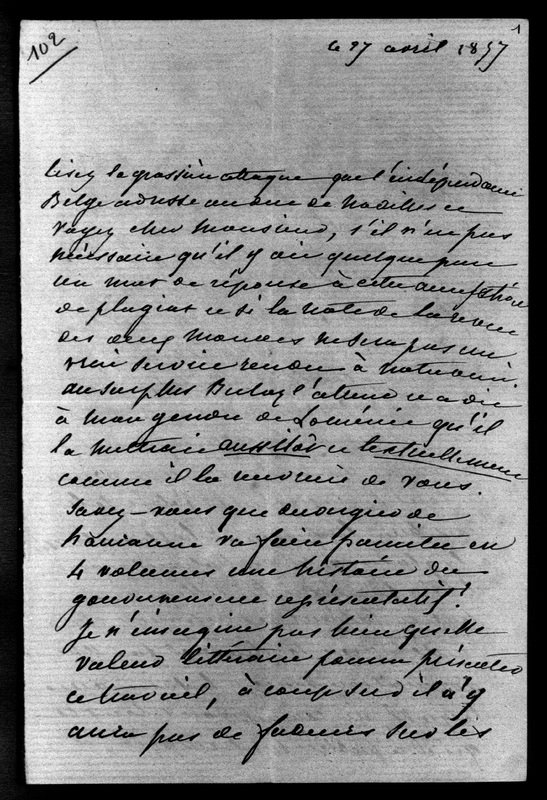 102
1
le 27 avril 1857
Lisez la grossière attaque que l'indépendance
Belge adresse au duc de Noailles et
voyez cher monsieur, s'il n'est pas
nécessaire qu'il y ait quelque part
un mot de réponse à cette accusation
de plagiat et si la note de la revue
des deux mondes ne sera pas un
vrai service rendu à notre ami.
au surplus Buloz l'attend et a dit
à mon gendre de Loménie qu'il
la mettrait aussitôt et textuellement
comme il la recevrait de vous.
Savez-vous que duvergier de
hauranne va faire paraître en
4 volumes une histoire du
gouvernement représentatif?
Je n'imagine pas bien quelle
valeur littéraire pourra présenter
ce travail, à coup sûr il n'y
aura pas de fadeurs sur les